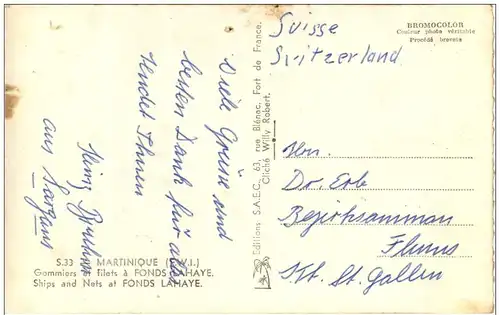 Suisse
Switzerland
BROMOCOLOR
Couleur photo véritable
Procédé breveté
Viele Grüsse und
besten Dank für alles
sendet Ihnen
Heinz
aus Sargans
Hrn.
Dr. Erb
Bezirksamman
Flums
Kt. St. Gallen
Editions S.A.E.C. 63, rue Blénac, Fort de France.
Cliché Willy Robert.
S.33 MARTINIQUE (F.W.I.)
Gommiers et filets à FONDS LAHAYE.
Ships and Nets at FONDS LAHAYE.